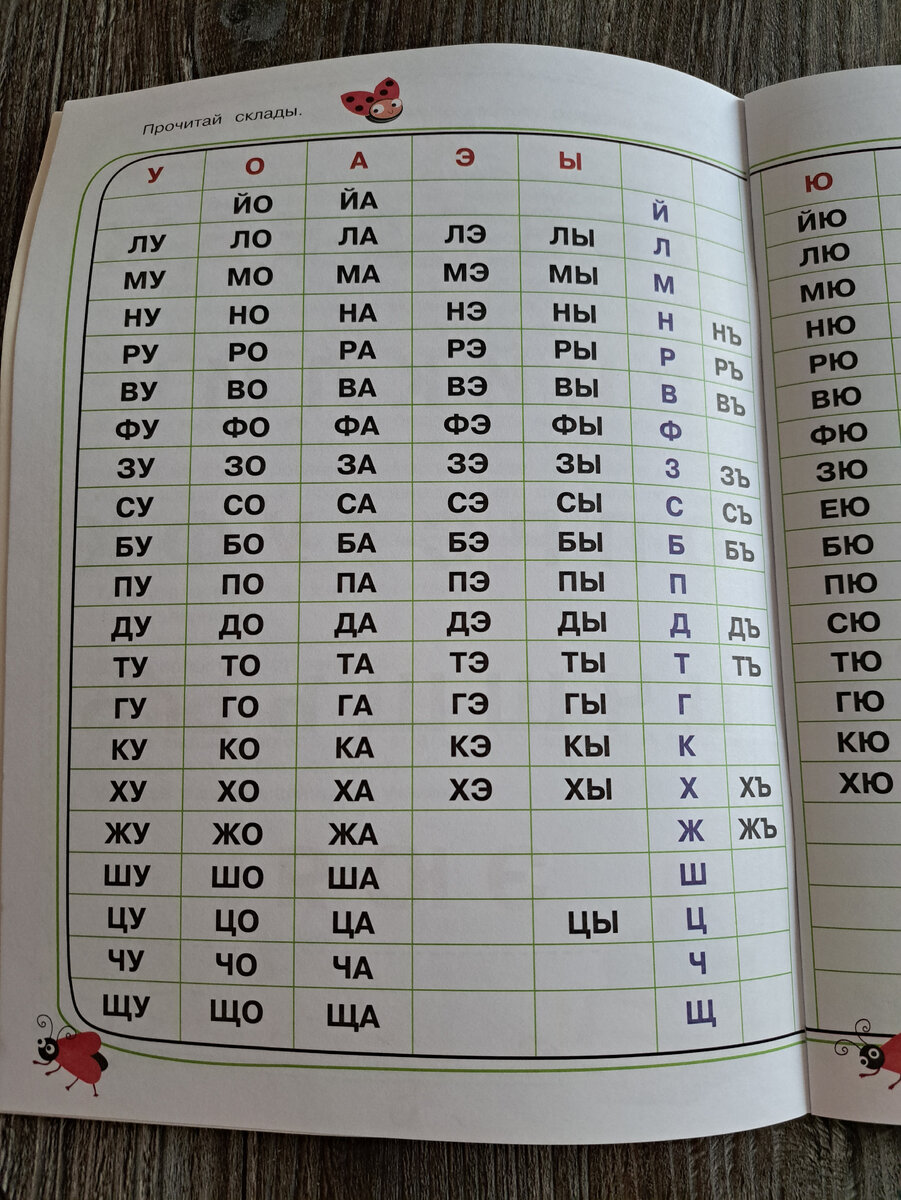 Прочитай склады.
У О А Э Ы
ЙО ЙА Й
ЛУ ЛО ЛА ЛЭ ЛЫ Л
МУ МО МА МЭ МЫ М
НУ НО НА НЭ НЫ Н НЪ
РУ РО РА РЭ РЫ Р РЪ
ВУ ВО ВА ВЭ ВЫ В ВЪ
ФУ ФО ФА ФЭ ФЫ Ф
ЗУ ЗО ЗА ЗЭ ЗЫ З ЗЪ
СУ СО СА СЭ СЫ С СЪ
БУ БО БА БЭ БЫ Б БЪ
ПУ ПО ПА ПЭ ПЫ П
ДУ ДО ДА ДЭ ДЫ Д ДЪ
ТУ ТО ТА ТЭ ТЫ Т ТЪ
ГУ ГО ГА ГЭ ГЫ Г
КУ КО КА КЭ КЫ К
ХУ ХО ХА ХЭ ХЫ Х ХЪ
ЖУ ЖО ЖА Ж ЖЪ
ШУ ШО ША Ш
ЦУ ЦО ЦА ЦЫ Ц
ЧУ ЧО ЧА Ч
ЩУ ЩО ЩА Щ
Ю
ЙЮ
ЛЮ
МЮ
НЮ
РЮ
ВЮ
ФЮ
ЗЮ
ЕЮ
БЮ
ПЮ
СЮ
ТЮ
ГЮ
КЮ
ХЮ